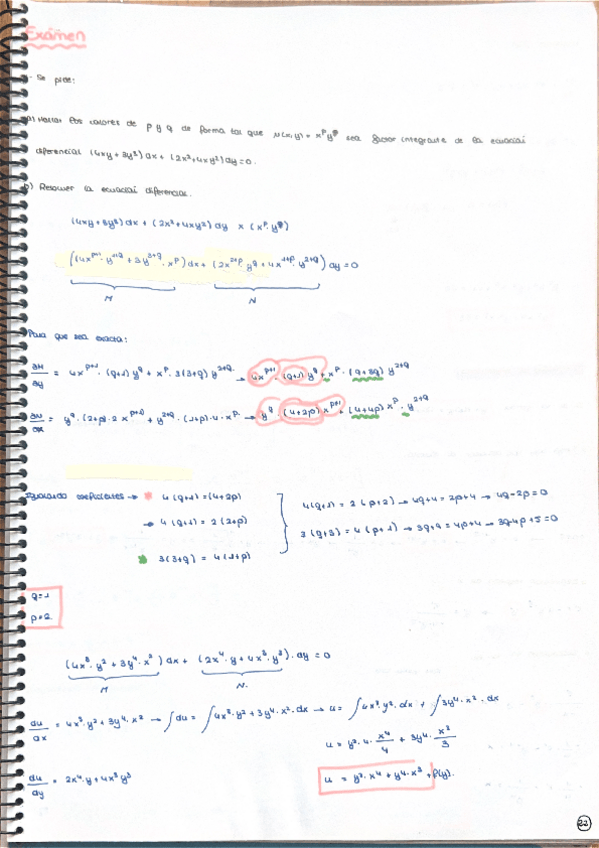 Exámen
- Se pide:
a) Hallar los valores de p y q de forma tal que μ(x,y) = x^p y^q sea factor integrante de la ecuación
diferencial (4xy + 3y³) dx + (2x² + 4xy²) dy = 0.
b) Resolver la ecuación diferencial.
(4xy + 3y³) dx + (2x² + 4xy²) dy x (x^p · y^q)
((4x^(p+1) · y^(1+q) + 3y^(3+q) · x^p) dx + (2x^(2+p) · y^q + 4x^(1+p) · y^(2+q)) dy = 0
M N
Para que sea exacta:
∂M/∂y = 4x^(p+1) · (q+1) y^q + x^p · 3(3+q) y^(2+q) → 4x^(p+1) · (q+1) y^q + x^p · (9+3q) y^(2+q)
∂N/∂x = y^q · (2+p) · 2 x^(p+1) + y^(2+q) · (1+p) · 4 · x^p → y^q · (4+2p) x^(p+1) + (4+4p) x^p · y^(2+q)
Igualando coeficientes → * 4(q+1) = (4+2p)
→ 4(q+1) = 2(2+p)
* 3(3+q) = 4(1+p)
4(q+1) = 2(p+2) → 4q+4 = 2p+4 → 4q-2p=0
3(q+3) = 4(p+1) → 3q+9 = 4p+4 → 3q-4p+5=0
q=1
p=2
(4x³ · y² + 3y⁴ · x²) dx + (2x⁴ · y + 4x³ · y³) · dy = 0
M N
du/dx = 4x³ · y² + 3y⁴ · x² → ∫du = ∫4x³ · y² + 3y⁴ · x² · dx → u = ∫4x³ · y² · dx + ∫3y⁴ · x² · dx
u = y² · 4 · x⁴/4 + 3y⁴ · x³/3
du/dy = 2x⁴ · y + 4x³ y³
u = y² · x⁴ + y⁴ · x³ + f(y).
22